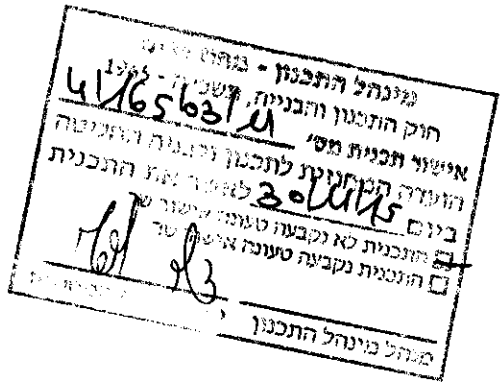 מינהל התכנון - מחוז
חוק התכנון והבנייה, תשכ"ה - 1965
אישור תכנית מס' 4/165/03/11
הועדה המחוזית לתכנון ובניה החליטה
ביום 30/11/15 לאשר את התכנית
התכנית לא נקבעה טעונה אישור שר
התכנית נקבעה טעונה אישור שר
מנהל מינהל התכנון